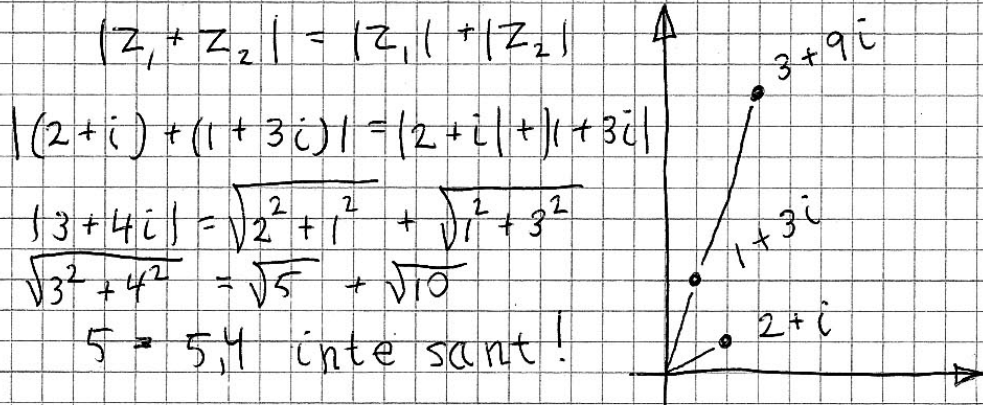 |z₁ + z₂| = |z₁| + |z₂|
|(2 + i) + (1 + 3i)| = |2 + i| + |1 + 3i|
|3 + 4i| = √(2² + 1²) + √(1² + 3²)
√(3² + 4²) = √5 + √10
5 = 5,4 inte sant!
3 + 9i
1 + 3i
2 + i